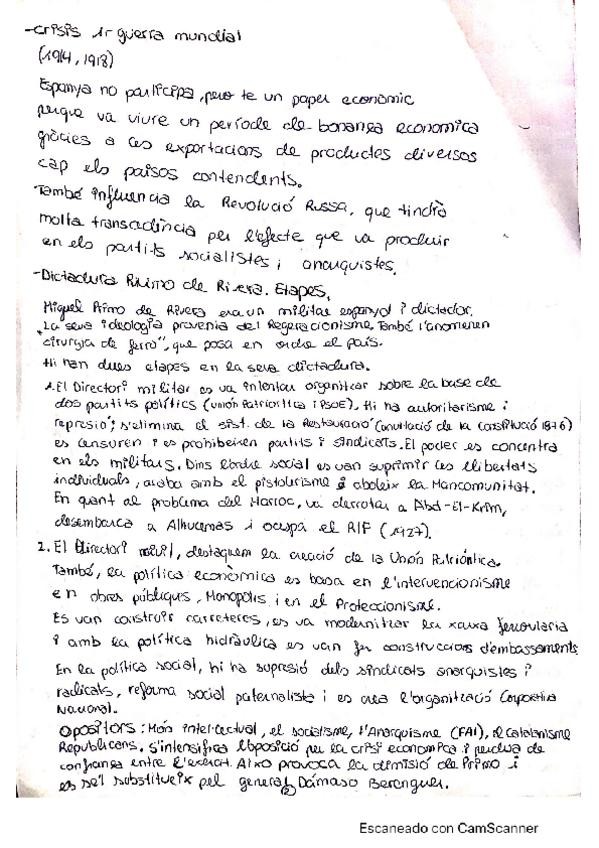 -Crisis 1r guerra mundial
(1914, 1918)
Espanya no participa, pero te un paper econòmic
perque va viure un període de bonança economica
gràcies a les exportacions de productes diversos
cap els països contendents.
També influencia la Revolució Russa, que tindrà
molta transcadència per l'efecte que va produir
en els partits socialistes i anarquistes.
-Dictadura Primo de Rivera. Etapes.
Miguel Primo de Rivera era un militar espanyol i dictador.
La seva ideologia provenia del Regeracionisme. També l'anomenen
"cirurgia de ferro", que posa en ordre el país.
Hi han dues etapes en la seva dictadura.
1. El Directori militar es va intentar organitzar sobre la base de
dos partits polítics (Unión Patriótica i PSOE). Hi ha autoritarisme i
represió; s'elimina el sist. de la Restauració (anul·tació de la Constitució 1876)
es censuren i es prohibeixen partits i sindicats. El poder es concentra
en els militars. Dins l'ordre social es van suprimir les llibertats
individuals, acaba amb el pistolerisme i aboleix la Mancomunitat.
En quant al problema del Marroc, va derrotar a Abd-El-Krim,
desembarca a Alhucemas i ocupa el RIF (1927).
2. El Directori civil, destaquem la creació de la Unión Patriòntica.
També, la política econòmica es basa en l'intervencionisme
en obres públiques, Monopolis i en el Proteccionisme.
Es van construir carreteres, es va modernitzar la xaxa ferroviaria
i amb la política hidràulica es van fer construccions d'embassaments
En la política social, hi ha supresió dels sindicats anarquistes i
radicals, reforma social paternalista i es crea l'organització Corporativa
Nacional.
Opositors: Món intel·lectual, el socialisme, l'Anarquisme (FAI), el Catalanisme
Republicans. S'intensifica l'oposició per la crisi economica i perdua de
confiança entre l'exèrcit. Aixo provoca la dimisió de Primo i
es sel substitueix pel general Dámaso Berenguer.
Escaneado con CamScanner